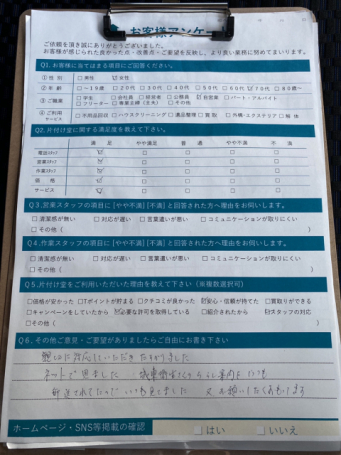 お客様アンケー
ご依頼を頂き誠にありがとうございました。
お客様が感じられた良かった点・改善点・ご要望を反映し、より良い業務に努めてまいります。
Q1. お客様に当てはまる項目にご回答ください。
①性 別 □男性 ☑女性
②年 齢 □～19歳 □20代 □30代 □40代 □50代 □60代 ☑70代 □80歳～
③ご職業 □学生 □会社員 □経営者 □公務員 ☑自営業 □パート・アルバイト
□フリーター □専業主婦(主夫) □その他
④ご利用サービス □不用品回収 □ハウスクリーニング □遺品整理 □買取 □外構・エクステリア □解体
Q2. 片付け堂に関する満足度を教えて下さい。
満 足 やや満足 普 通 やや不満 不 満
電話対応 ☑ □ □ □ □
営業対応 ☑ □ □ □ □
作業対応 ☑ □ □ □ □
価 格 ☑ □ □ □ □
サービス ☑ □ □ □ □
Q3. 営業スタッフの項目に[やや不満][不満]と回答された方へ理由をお伺いします。
□清潔感が無い □対応が遅い □言葉遣いが悪い □コミュニケーションが取りにくい
□その他( )
Q4. 作業スタッフの項目に[やや不満][不満]と回答された方へ理由をお伺いします。
□清潔感が無い □対応が遅い □言葉遣いが悪い □コミュニケーションが取りにくい
□その他( )
Q5. 片付け堂をご利用いただいた理由を教えて下さい(※複数選択可)
□価格が安かった □Tポイントが貯まる □クチコミが良かった ☑安心・信頼が持てた □買取りができる
□キャンペーンをしていたから ☑必要な許可を取得している □紹介されたから ☑スタッフの対応
□その他( )
Q6. その他ご意見・ご要望がありましたらご自由にお書き下さい
親切に対応していただき たすかりました
ネットで
ホームページ・SNS等掲載の確認 □はい □いいえ